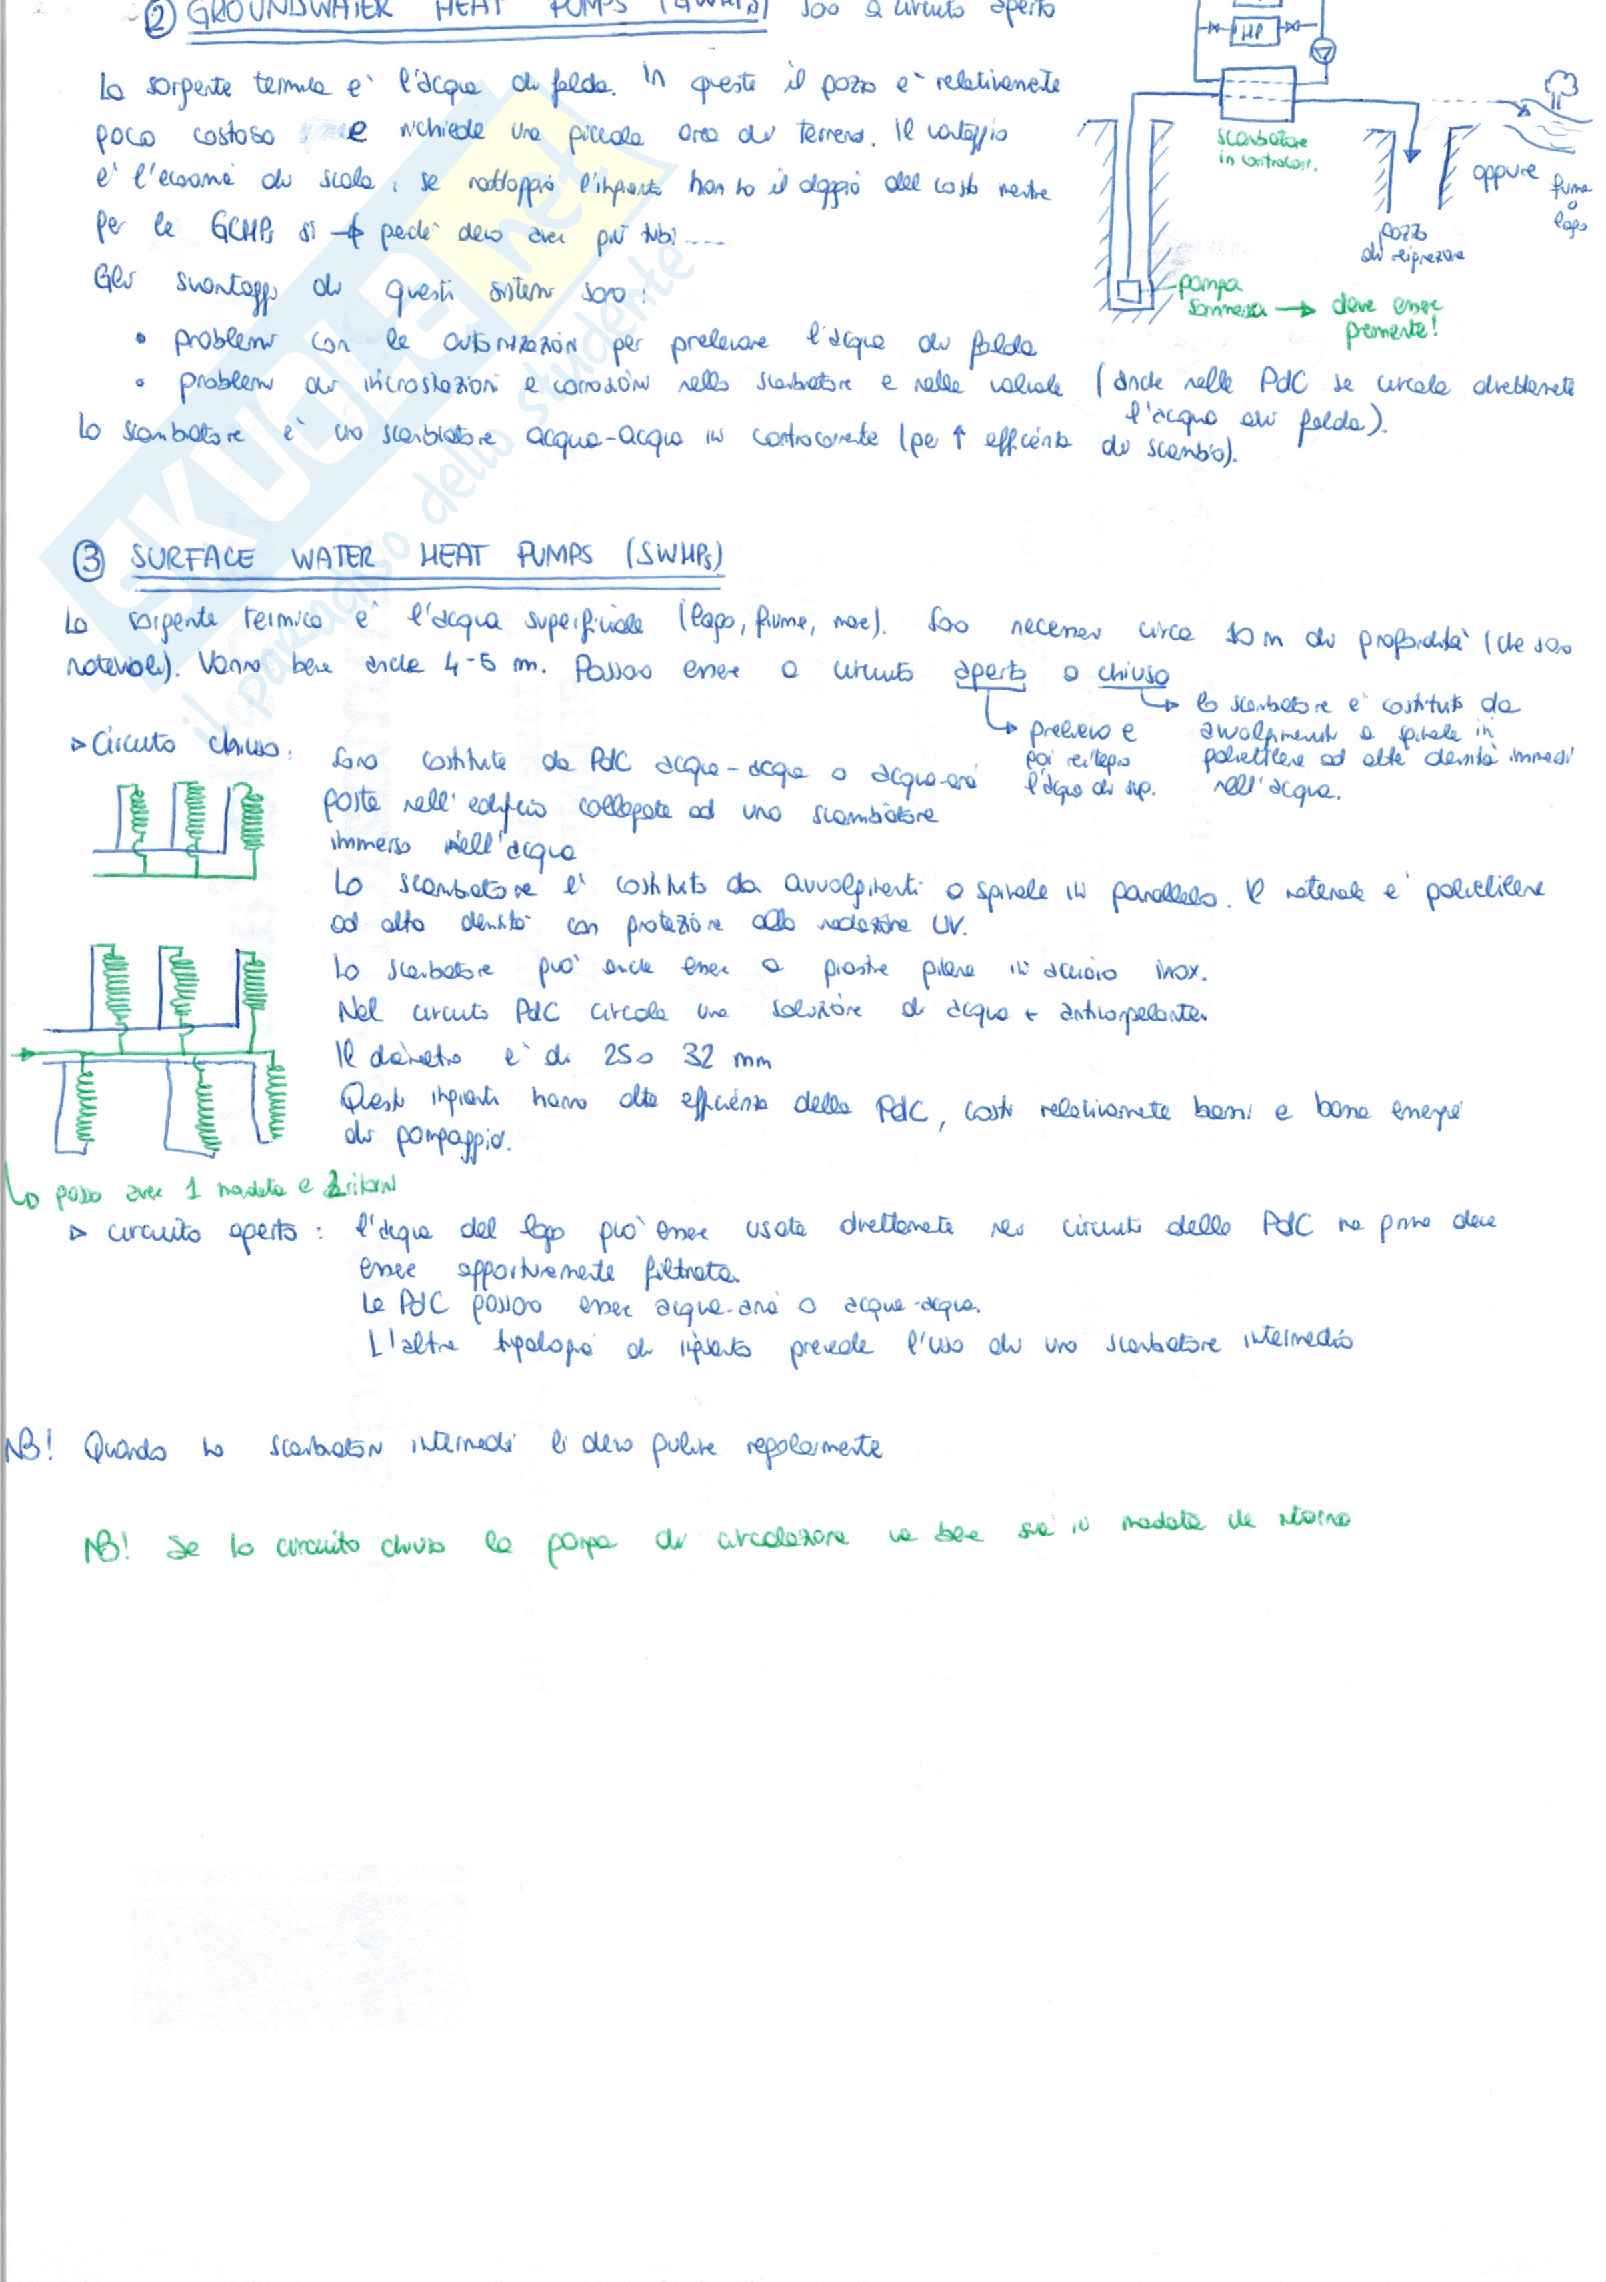 ② GROUNDWATER HEAT PUMPS (GWHPs) sono a circuito aperto
HP
La sorgente termica e' l'acqua di falda. In queste il pozzo e' relativamente
poco costoso e richiede una piccola area di terreno. Il vantaggio
e' l'economia di scala, se raddoppio l'impianto non ho il doppio del costo mentre
per le GCHPs si → perché devo aver più tubi ....
Gli svantaggi di questi sistemi sono:
• problemi con le autorizzazioni per prelevare l'acqua di falda
• problemi di incrostazioni e corrosioni nello scambiatore e nelle valvole (anche nelle PdC se circola direttamente
l'acqua di falda).
Lo scambiatore e' uno scambiatore acqua-acqua in controcorrente (per ↑ efficienza di scambio).
scambiatore
in controcorr.
pozzo
di reiniezione
oppure
fiume
o
lago
pompa
sommersa → deve esser
premente!
③ SURFACE WATER HEAT PUMPS (SWHPs)
La sorgente termica e' l'acqua superficiale (lago, fiume, mare). Sono necessari circa 10 m di profondità (che sono
notevoli). Vanno bene anche 4-5 m. Possono essere a circuito aperto o chiuso
prelievo e
poi
l'acqua di sup.
lo scambiatore e' costituito da
avvolgimenti a spirale in
polietilene ad alta densità immersi
nell'acqua.
▹ Circuito chiuso: Sono costituite da PdC acqua-acqua o acqua-aria
poste nell'edificio collegate ad uno scambiatore
immerso nell'acqua
Lo scambiatore e' costituito da avvolgimenti a spirale in parallelo. Il materiale e' polietilene
ad alta densità con protezione alla radiazione UV.
Lo scambiatore può anche esser a piastre piane in acciaio inox.
Nel circuito PdC circola una soluzione di acqua + anticongelante.
Il diametro e' di 25 o 32 mm
Questi impianti hanno alta efficienza della PdC, costi relativamente bassi e bassa energia
di pompaggio.
posso aver 1 mandata e 2 ritorni
▹ circuito aperto: l'acqua del lago può esser usata direttamente nei circuiti della PdC ma prima deve
esser opportunamente filtrata.
Le PdC possono esser acqua-aria o acqua-acqua.
L'altra tipologia di impianto prevede l'uso di uno scambiatore intermedio
NB! Quando ho scambiatori intermedi li devo pulire regolarmente
NB! Se ho circuito chiuso la pompa di circolazione va bene sia in mandata che ritorno
SKUOLA.net
il paradiso dello studente